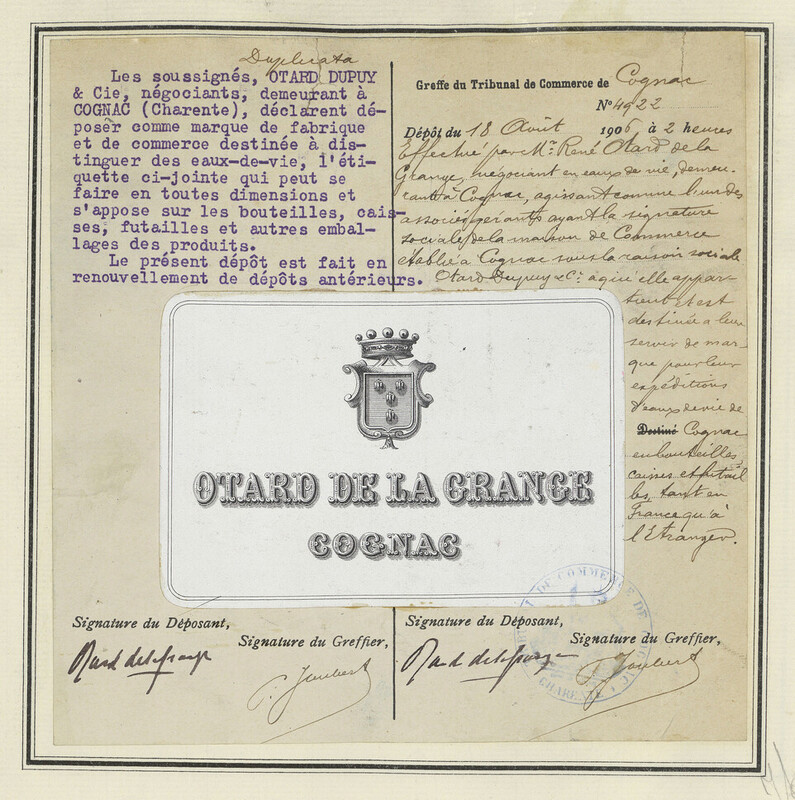 Duplicata
Les soussignés, OTARD DUPUY
& Cie, négociants, demeurant à
COGNAC (Charente), déclarent dé-
poser comme marque de fabrique
et de commerce destinée à dis-
tinguer des eaux-de-vie, l'éti-
quette ci-jointe qui peut se
faire en toutes dimensions et
s'appose sur les bouteilles, cais-
ses, futailles et autres embal-
lages des produits.
Le présent dépôt est fait en
renouvellement de dépôts antérieurs.
Greffe du Tribunal de Commerce de Cognac
N° 4922
Dépôt du 18 Août 1906 à 2 heures
Effectué par Mr. René Otard de la
Grange, négociant en eaux de vie, demeu-
rant à Cognac, agissant comme l'un des
associés gérants ayant la signature
sociale de la maison de Commerce
etablie à Cognac sous la raison sociale
Otard Dupuy & Cie à qui elle appar-
tient et est
destinée a leur
servir de mar-
que pour leur
expéditions
d'eaux de vie de
Destiné Cognac
en bouteilles,
caisses et futail
les, tant en
France qu'à
l'Etranger.
OTARD DE LA GRANGE
COGNAC
Signature du Déposant,
Signature du Greffier,
Otard de la Grange
P. Joubert
Signature du Déposant,
Signature du Greffier,
Otard de la Grange
P. Joubert
DE COMMERCE DE
CHARENTE